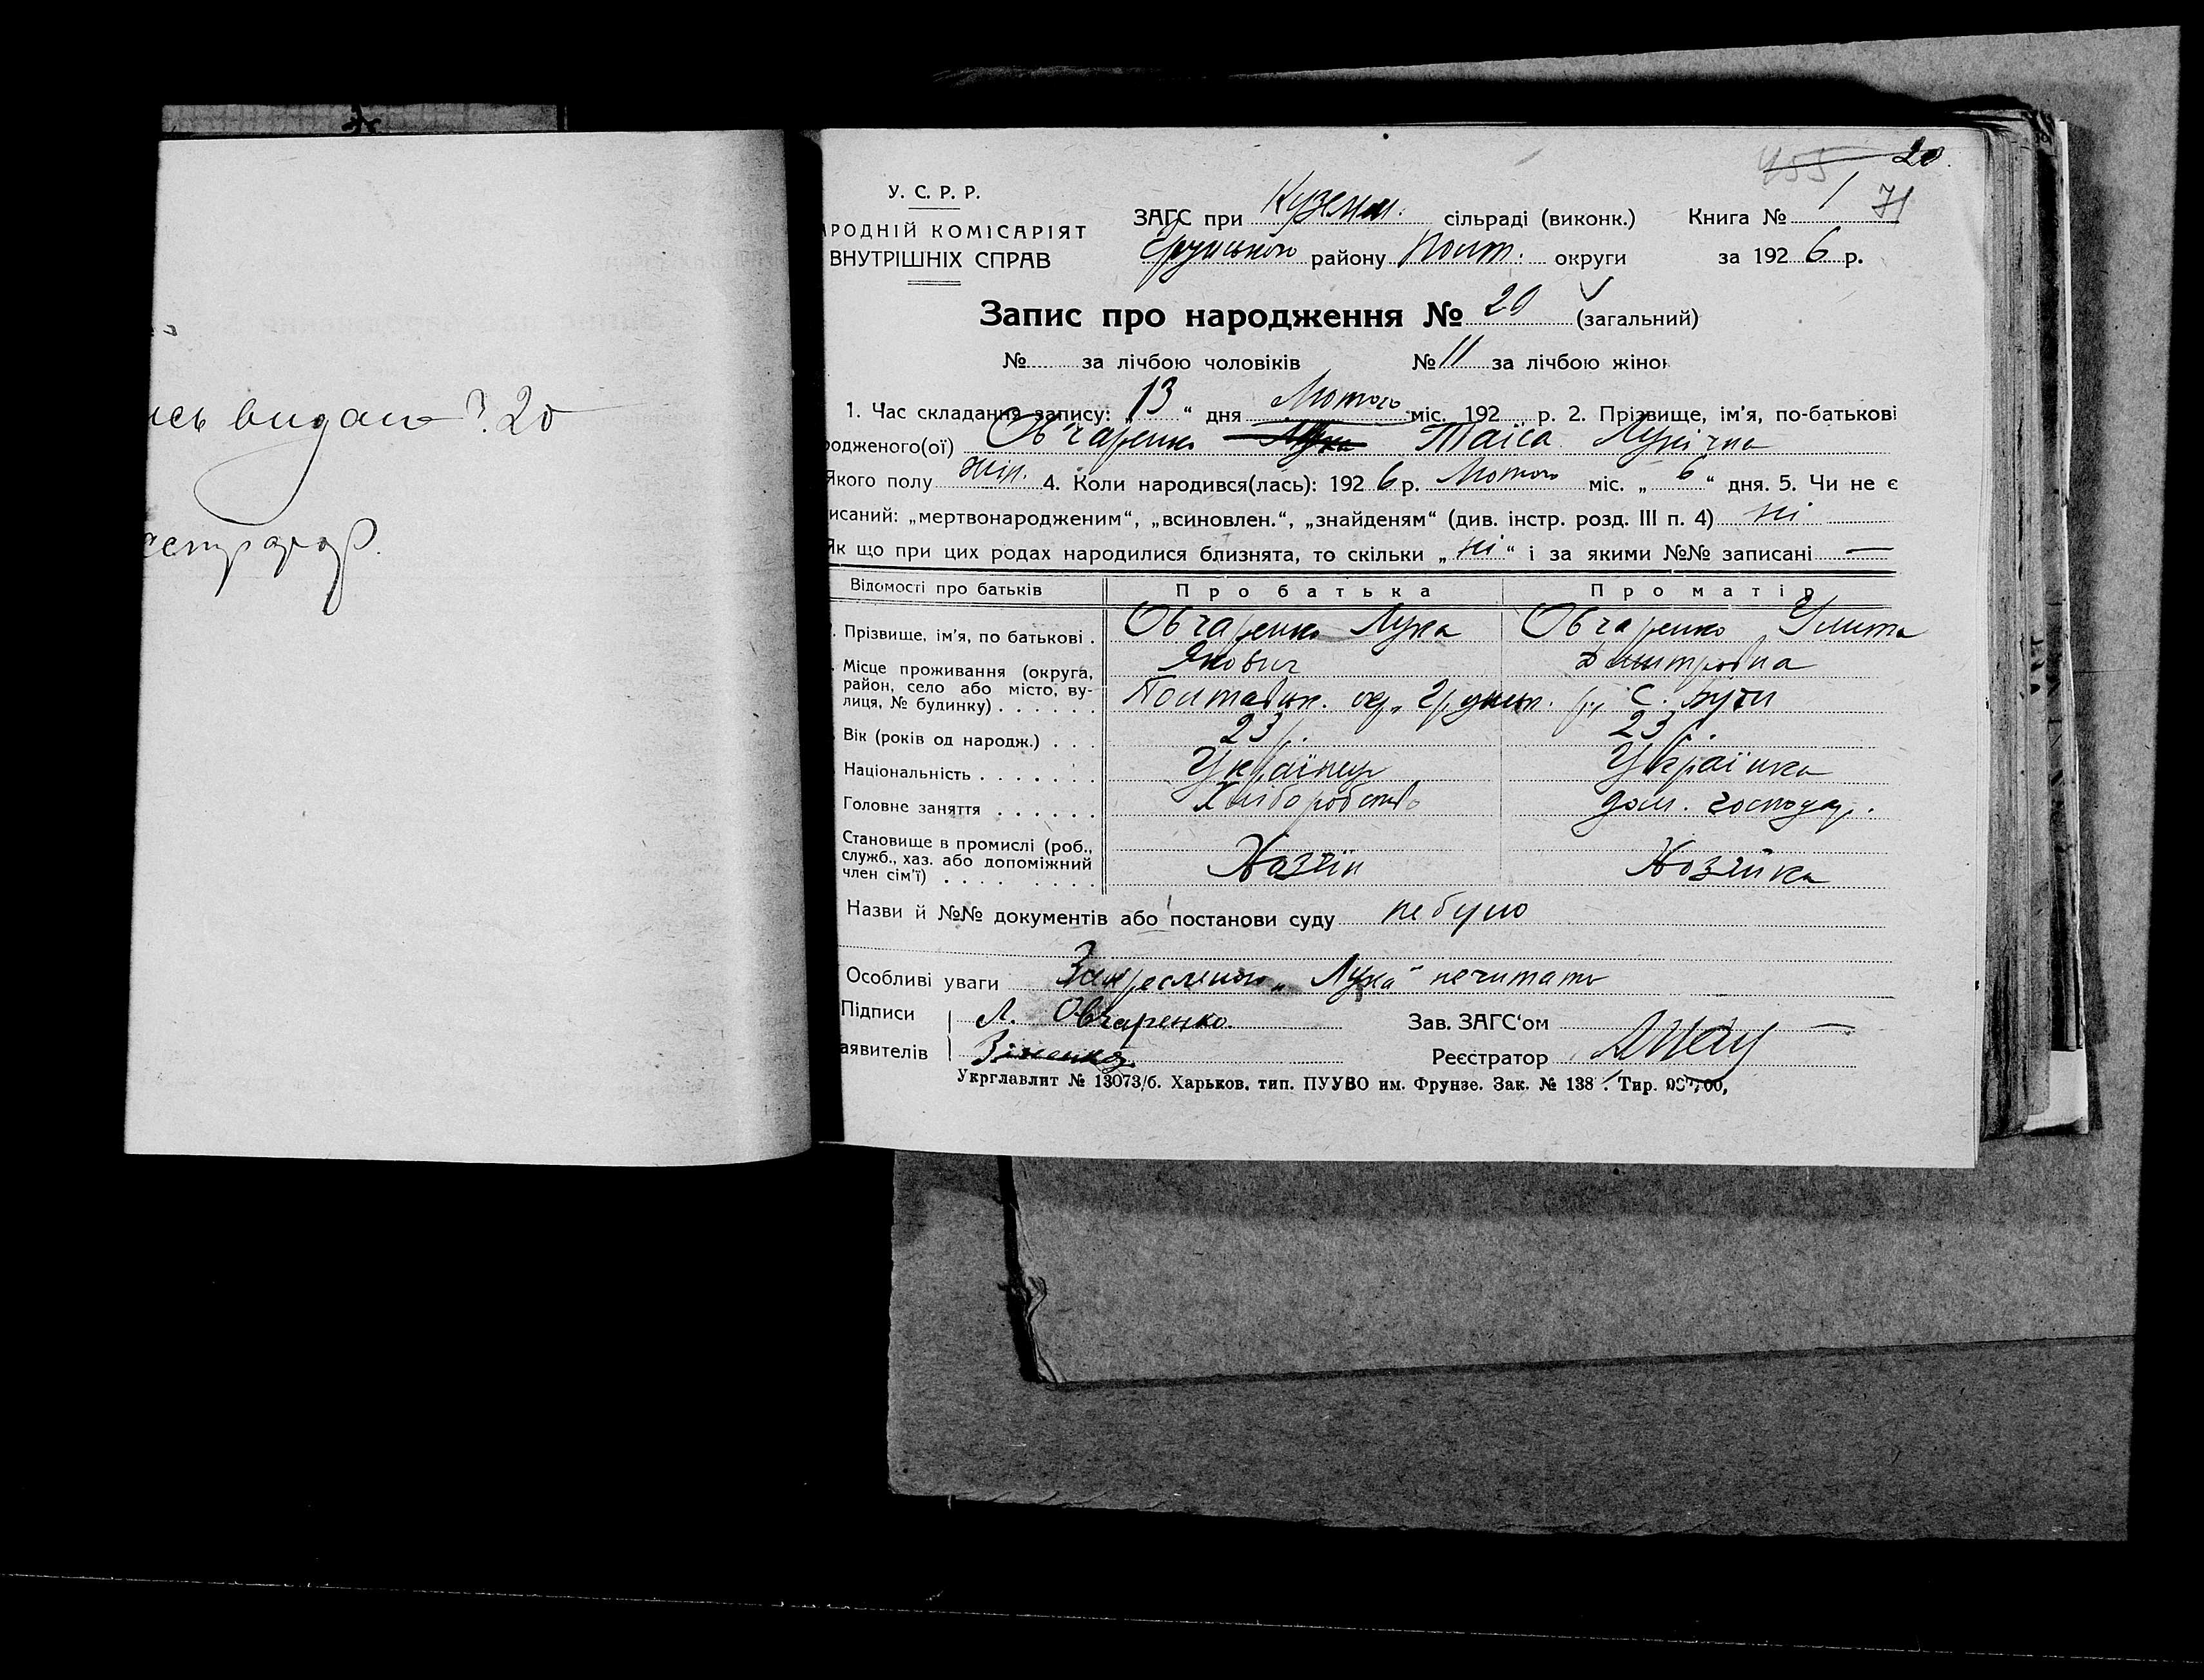 ись видано № 20
У. С. Р. Р.
АРОДНІЙ КОМІСАРІЯТ
ВНУТРІШНІХ СПРАВ
455 20
ЗАГС при Кузем. сільраді (виконк.) Книга № 1 71
Грунського району Полт. округи за 1926 р.
Запис про народження № 20 (загальний)
№ за лічбою чоловіків № 11 за лічбою жінок
1. Час складання запису: „13“ дня Лютого міс. 192 р. 2. Прізвище, ім’я, по-батькові
родженого(ої) Овчаренко Лука Таїса Лукічна
Якого полу жін. 4. Коли народився(лась): 1926 р. Лютого міс. „6“ дня. 5. Чи не є
исаний: „мертвонародженим“, „всиновлен.“, „знайденям“ (див. інстр. розд. III п. 4) ні
Як що при цих родах народилися близнята, то скільки „ні“ і за якими №№ записані —
Відомості про батьків Про батька Про матір
Прізвище, ім’я, по батькові . Овчаренко Лука Якович Овчаренко Улита Дмитровна
Місце проживання (округа, район, село або місто, вулиця, № будинку) . . . . . . Полтавськ. ок., Грунськ. р., с.
Вік (років од народж.) . . . 23 р. 23 р.
Національність . . . . . . . Українець Українка
Головне заняття . . . . . . Хліборобство дом. господар.
Становище в промислі (роб., служб., хаз. або допоміжний член сім’ї) . . . . . . . . Хазяїн Хозяйка
Назви й №№ документів або постанови суду не було
Особливі уваги Закреслиного „Лука“ нечитать
Підписи Л. Овчаренко. Зав. ЗАГС‘ом —
аявителів Реєстратор
Укрглавлит № 13073/б. Харьков. тип. ПУУВО им. Фрунзе. Зак. № 138 . Тир.